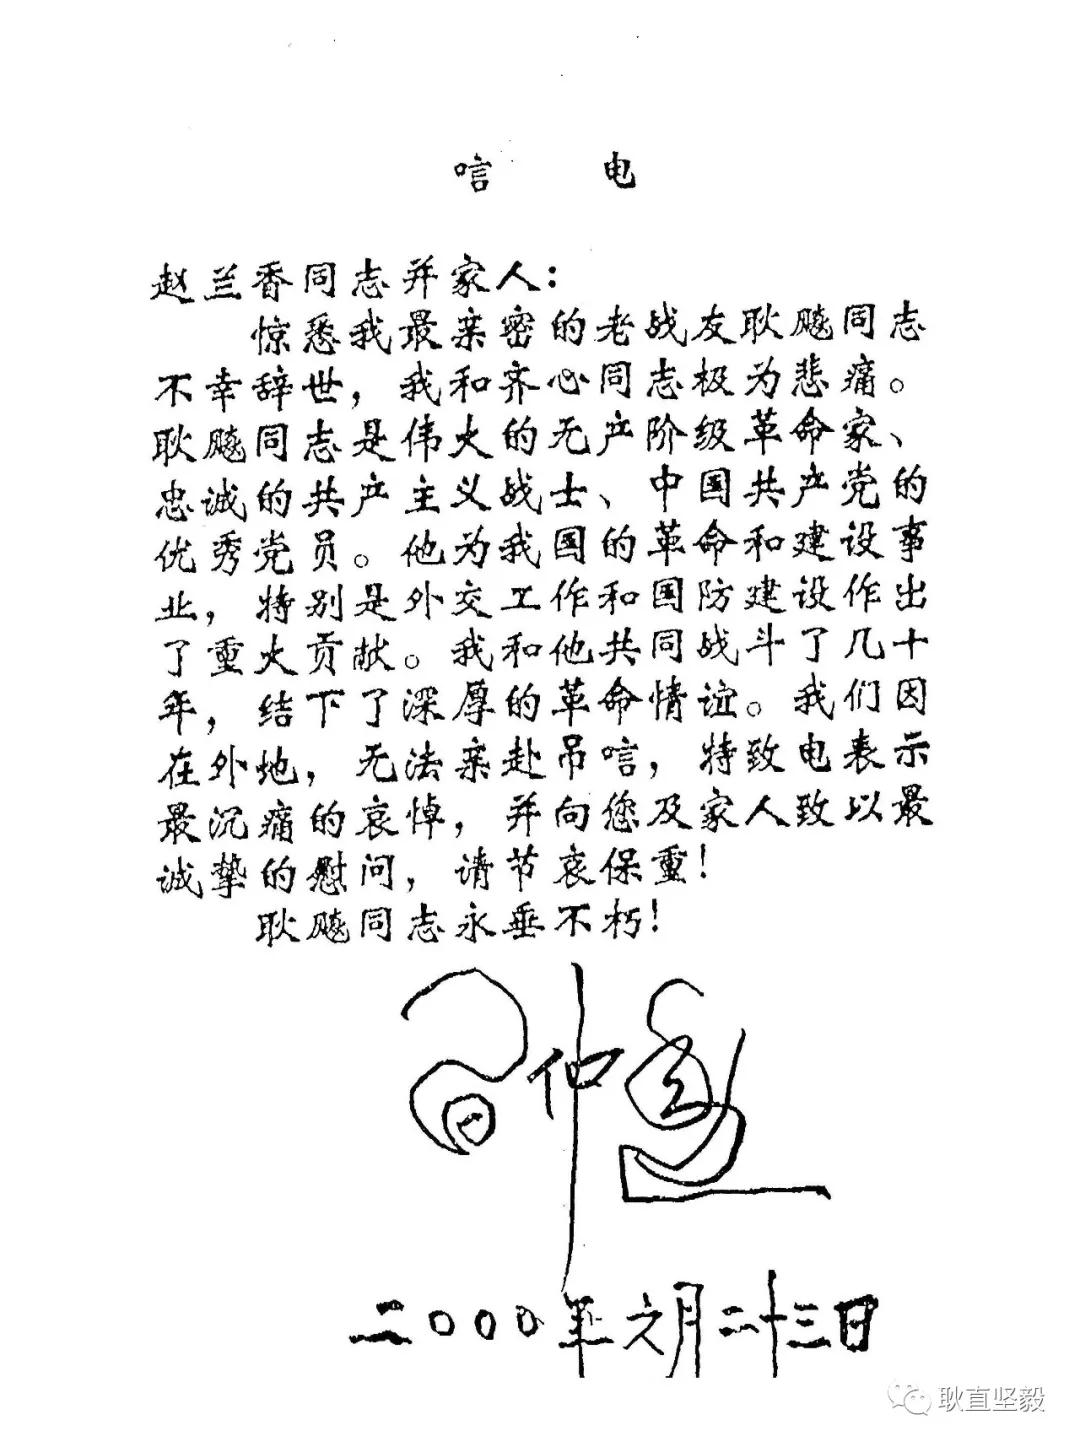 唁 电
赵兰香同志并家人：
惊悉我最亲密的老战友耿飚同志
不幸辞世，我和齐心同志极为悲痛。
耿飚同志是伟大的无产阶级革命家、
忠诚的共产主义战士、中国共产党的
优秀党员。他为我国的革命和建设事
业，特别是外交工作和国防建设作出
了重大贡献。我和他共同战斗了几十
年，结下了深厚的革命情谊。我们因
在外地，无法亲赴吊唁，特致电表示
最沉痛的哀悼，并向您及家人致以最
诚挚的慰问，请节哀保重！
耿飚同志永垂不朽！
习仲勋
二〇〇〇年六月二十三日
耿直坚毅